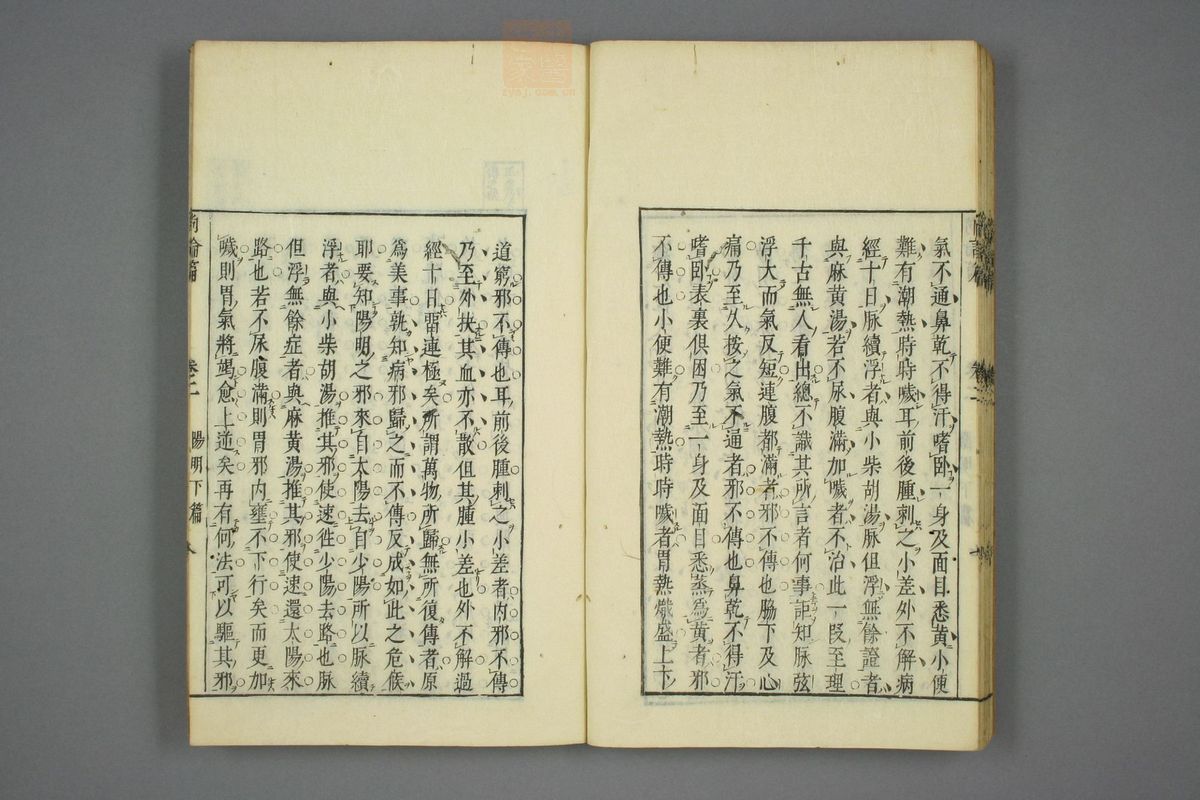 氣不通鼻乾不得汗嗜卧一身及面目悉黄小便
難有潮熱時時噦耳前後腫刺之小差外不解病
經十日脉續浮者與小柴胡湯脉但浮無餘證者
與麻黄湯若不尿腹滿加噦者不治此一段至理
千古無人看出總不識其所言者何事詎知脉弦
浮大而氣反短連腹都滿者邪不傳也脇下及心
痛乃至久按之氣不通者邪不傳也鼻乾不得汗
嗜卧表裏俱困乃至一身及面目悉蒸爲黄者邪
不傳也小便難有潮熱時時噦者胃熱熾盛上下
道窮邪不傳也耳前後腫刺之小差者内邪不傳
乃至外挾其血亦不散但其腫小差也外不解過
經十日留連極矣所謂萬物所歸無所復傳者原
爲美事孰知病邪歸之而不傳反成如此之危候
耶要知陽明之邪來自太陽去自少陽所以脉續
浮者與小柴胡湯推其邪使速徃少陽去路也脉
但浮無餘症者與麻黄湯推其邪使速還太陽來
路也若不尿腹滿則胃邪内壅不下行矣而更加
噦則胃氣將竭愈上逆矣再有何法可以驅其邪
尚論篇
卷二
陽明下篇